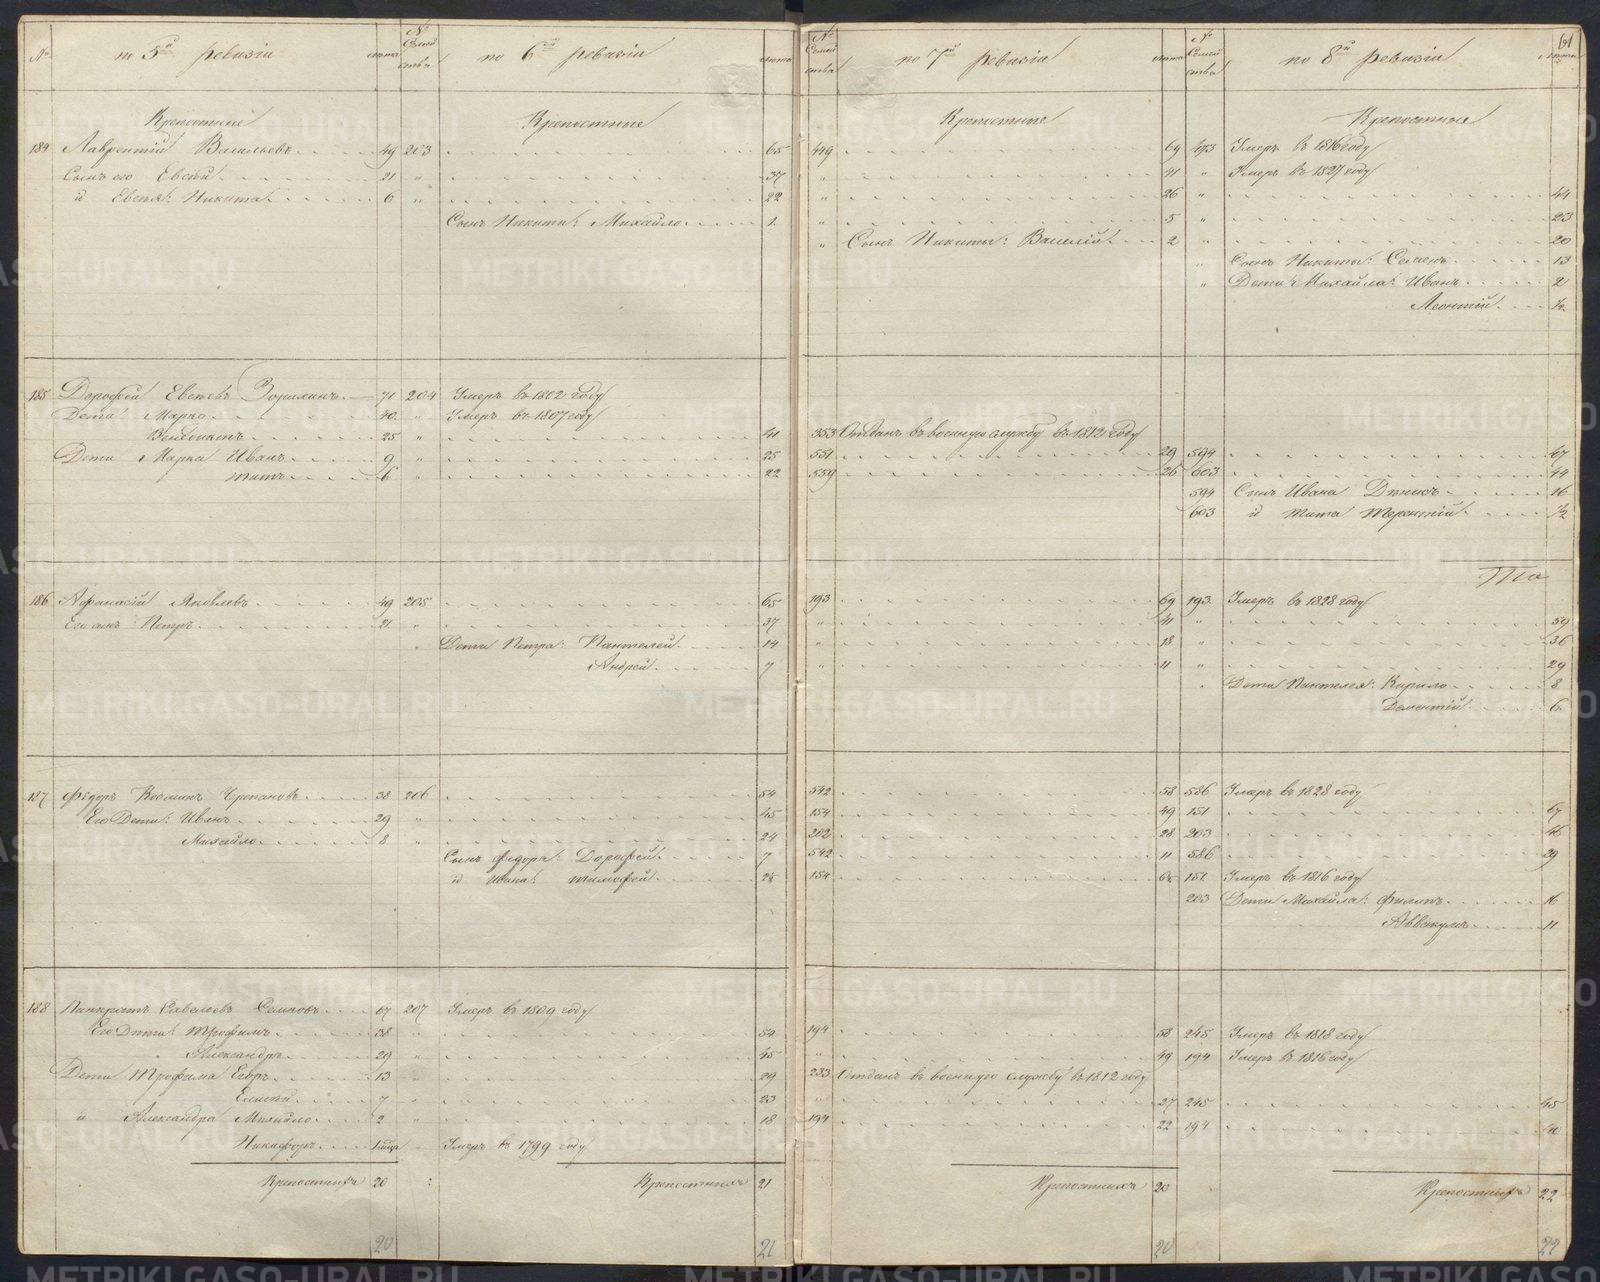 № по 5й ревизіи лѣта № Семейства по 6й ревизіи лѣта № Семейства по 7й ревизіи лѣта № Семейства по 8й ревизіи лѣта 61
Крепостные Крепостные Крепостные Крепостные
184 Лаврентій Васильевъ 49 203 65 449 69 473 Умеръ въ 1816 году
Сынъ его Евсѣй 21 " 37 " 41 " Умеръ въ 1827 году
и Евсѣя: Никита 6 " 22 " 26 " 44
Сынъ Никиты: Михайло 1 " 5 " 23
" Сынъ Никиты: Василій 2 " 20
" Сынъ Никиты: Семенъ 13
" Дети Михайла: Иванъ 2
Леонтій ½
185 Дорофей Евсѣевъ 71 204 Умеръ въ 1802 году
Дети Марко 40 " Умеръ въ 1807 году
Венедиктъ 25 " 41 353 Отданъ въ военную службу въ 1812 году
Дети Марка Иванъ 9 " 25 551 29 594 47
Титъ 6 " 22 559 26 603 44
594 Сынъ Ивана Денисъ 16
603 и Тита Терентій ½
186 Афанасій Яковлевъ 49 205 65 193 69 193 Умеръ въ 1828 году
Его сынъ Петръ 21 " 37 " 41 " 59
" Дети Петра: Пантелей 14 " 18 " 36
Андрей 7 " 11 " 29
Дети Пантелея: Кирило 8
Дементій 6
187 Федоръ Козминъ Черепановъ 38 206 54 542 58 586 Умеръ въ 1828 году
Его Дети: Иванъ 29 " 45 154 49 151 67
Михайло 8 " 24 202 28 203 46
Сынъ Федора: Дорофей 7 542 11 586 29
и Ивана: Тимофей 154 151 Умеръ въ 1816 году
203 Дети Михайла: Филипъ 16
Аввакумъ 11
188 Панкратъ Савельевъ 67 207 Умеръ въ 1809 году
Его Дети: Трофимъ 38 " 54 194 58 245 Умеръ въ 1818 году
Александръ 29 " 45 " 49 194 Умеръ въ 1816 году
Дети Трофима Егоръ 13 " 29 233 Отданъ въ военную службу въ 1812 году
7 " 23 " 27 245 45
и Александра Михайло 2 " 18 194 22 194
Никифоръ " Умеръ въ 1799 году
Крепостныхъ 20 Крепостныхъ 21 Крепостныхъ 20 Крепостныхъ 22
20 21 20 22
METRIKI.GASO-URAL.RU